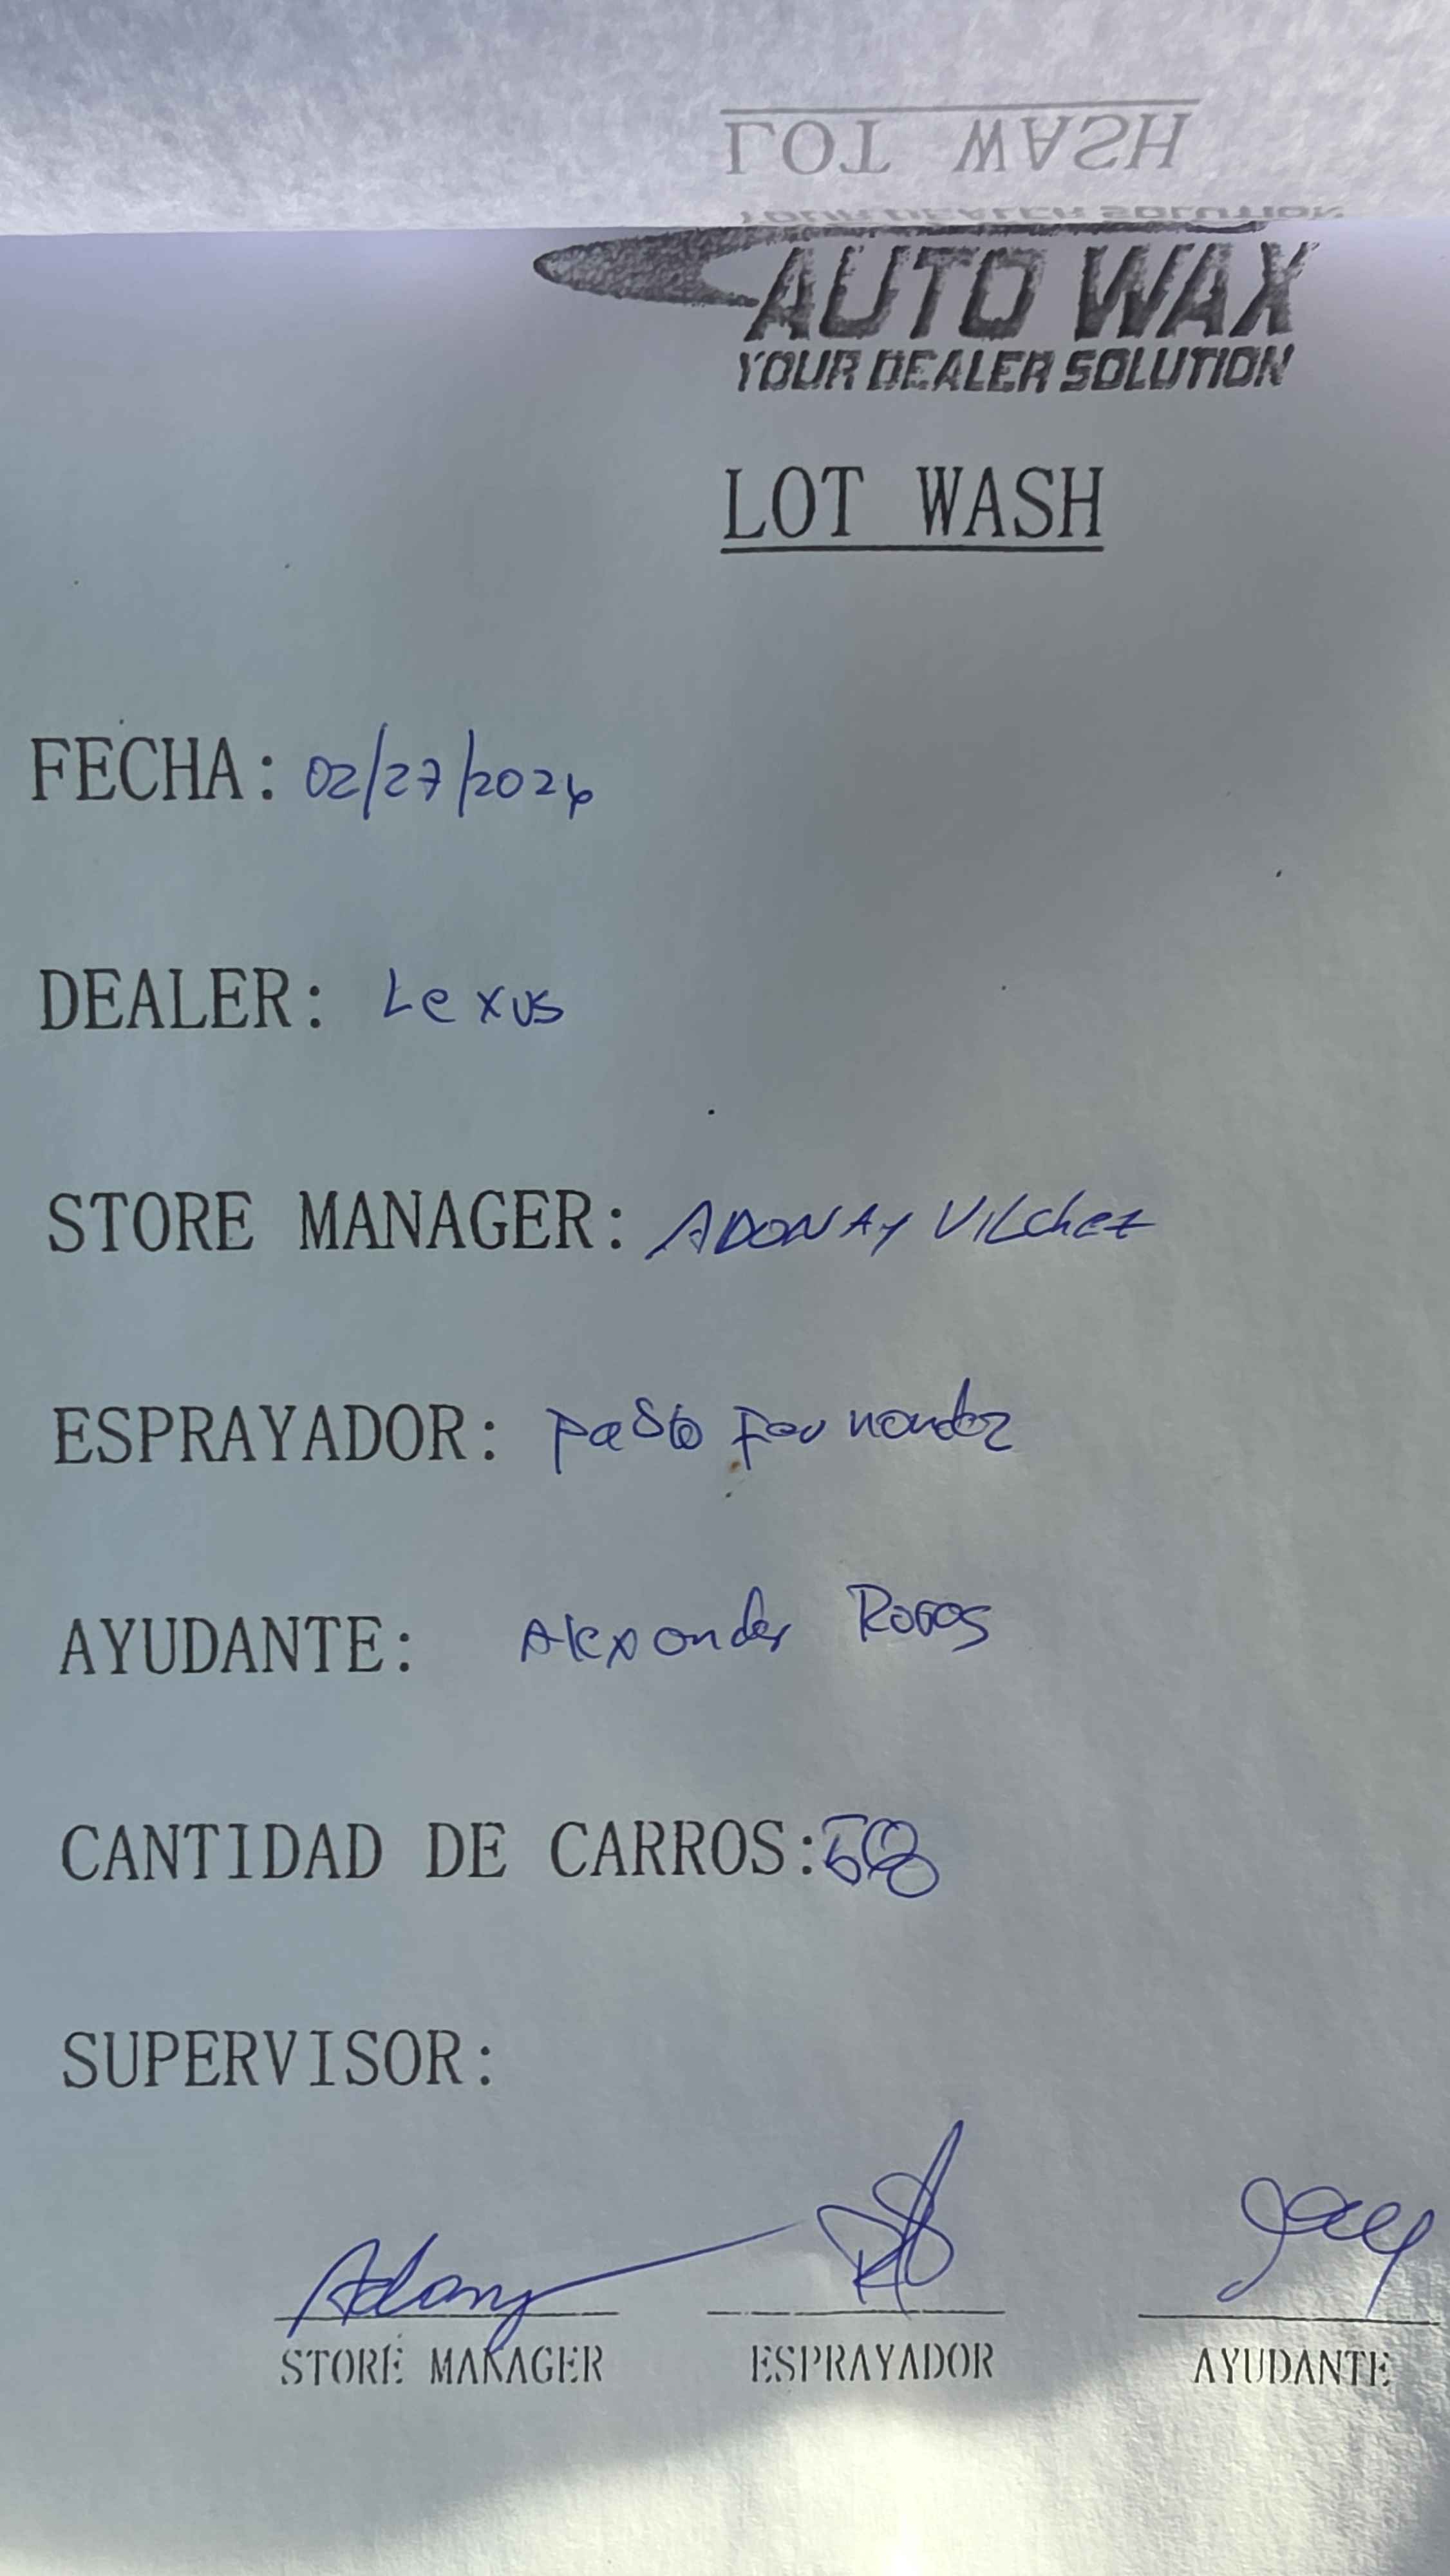 LOT WASH
YOUR DEALER SOLUTION
AUTO WAX
YOUR DEALER SOLUTION
LOT WASH
FECHA: 02/27/2026
DEALER: Lexus
STORE MANAGER: ADONAY VILchez
ESPRAYADOR: Pablo Fernandez
AYUDANTE: Alexander Rojas
CANTIDAD DE CARROS:
SUPERVISOR:
Adonay
STORE MANAGER ESPRAYADOR AYUDANTE